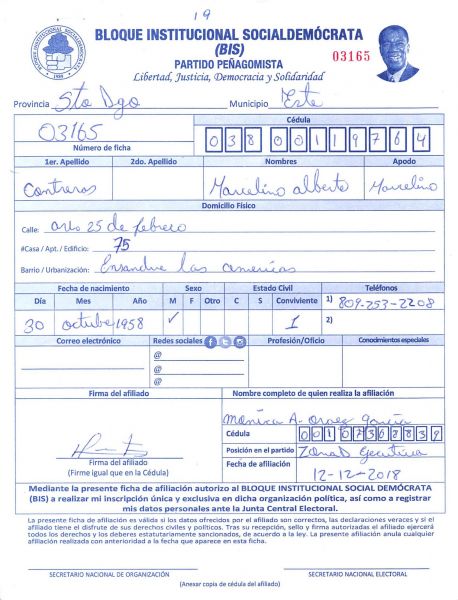 19
BLOQUE INSTITUCIONAL SOCIALDEMÓCRATA
(BIS)
PARTIDO PEÑAGOMISTA
Libertad, Justicia, Democracia y Solidaridad
03165
BLOQUE INSTITUCIONAL SOCIALDEMOCRATA
Provincia Sto Dgo Municipio Este
03165
Número de ficha
Cédula
03800119764
1er. Apellido 2do. Apellido Nombres Apodo
Contreras Marcelino alberto Marcelino
Domicilio Físico
Calle: 25 de febrero
#Casa / Apt. / Edificio: 75
Barrio / Urbanización: Ensanche las americas
Fecha de nacimiento Sexo Estado Civil Teléfonos
Día Mes Año M F Otro C S Conviviente 1) 809-253-2208
30 octubre 1958 ✓ 1 2)
Correo electrónico Redes sociales Profesión/Oficio Conocimientos especiales
@
@
@
Firma del afiliado Nombre completo de quien realiza la afiliación
Monica A. García
Cédula
00107368839
Posición en el partido Zonal Ejecutiva
Firma del afiliado
(Firme igual que en la Cédula)
Fecha de afiliación 12-12-2018
Mediante la presente ficha de afiliación autorizo al BLOQUE INSTITUCIONAL SOCIAL DEMÓCRATA
(BIS) a realizar mi inscripción única y exclusiva en dicha organización política, así como a registrar
mis datos personales ante la Junta Central Electoral.
La presente ficha de afiliación es válida si los datos ofrecidos por el afiliado son correctos, las declaraciones veraces y si el
afiliado tiene el disfrute de sus derechos civiles y políticos. Tras su recepción, sello y firma autorizadas el afiliado ejercerá
todos los derechos y los deberes estatutariamente sancionados, de acuerdo a la ley. La presente afiliación anula cualquier
afiliación realizada con anterioridad a la fecha que aparece en esta ficha.
SECRETARIO NACIONAL DE ORGANIZACIÓN SECRETARIO NACIONAL ELECTORAL
(Anexar copia de cédula del afiliado)